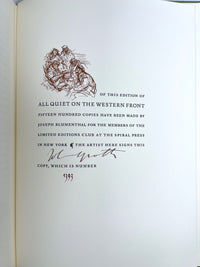 OF THIS EDITION OF
ALL QUIET ON THE WESTERN FRONT
FIFTEEN HUNDRED COPIES HAVE BEEN MADE BY
JOSEPH BLUMENTHAL FOR THE MEMBERS OF THE
LIMITED EDITIONS CLUB AT THE SPIRAL PRESS
IN NEW YORK ¶ THE ARTIST HERE SIGNS THIS
COPY, WHICH IS NUMBER